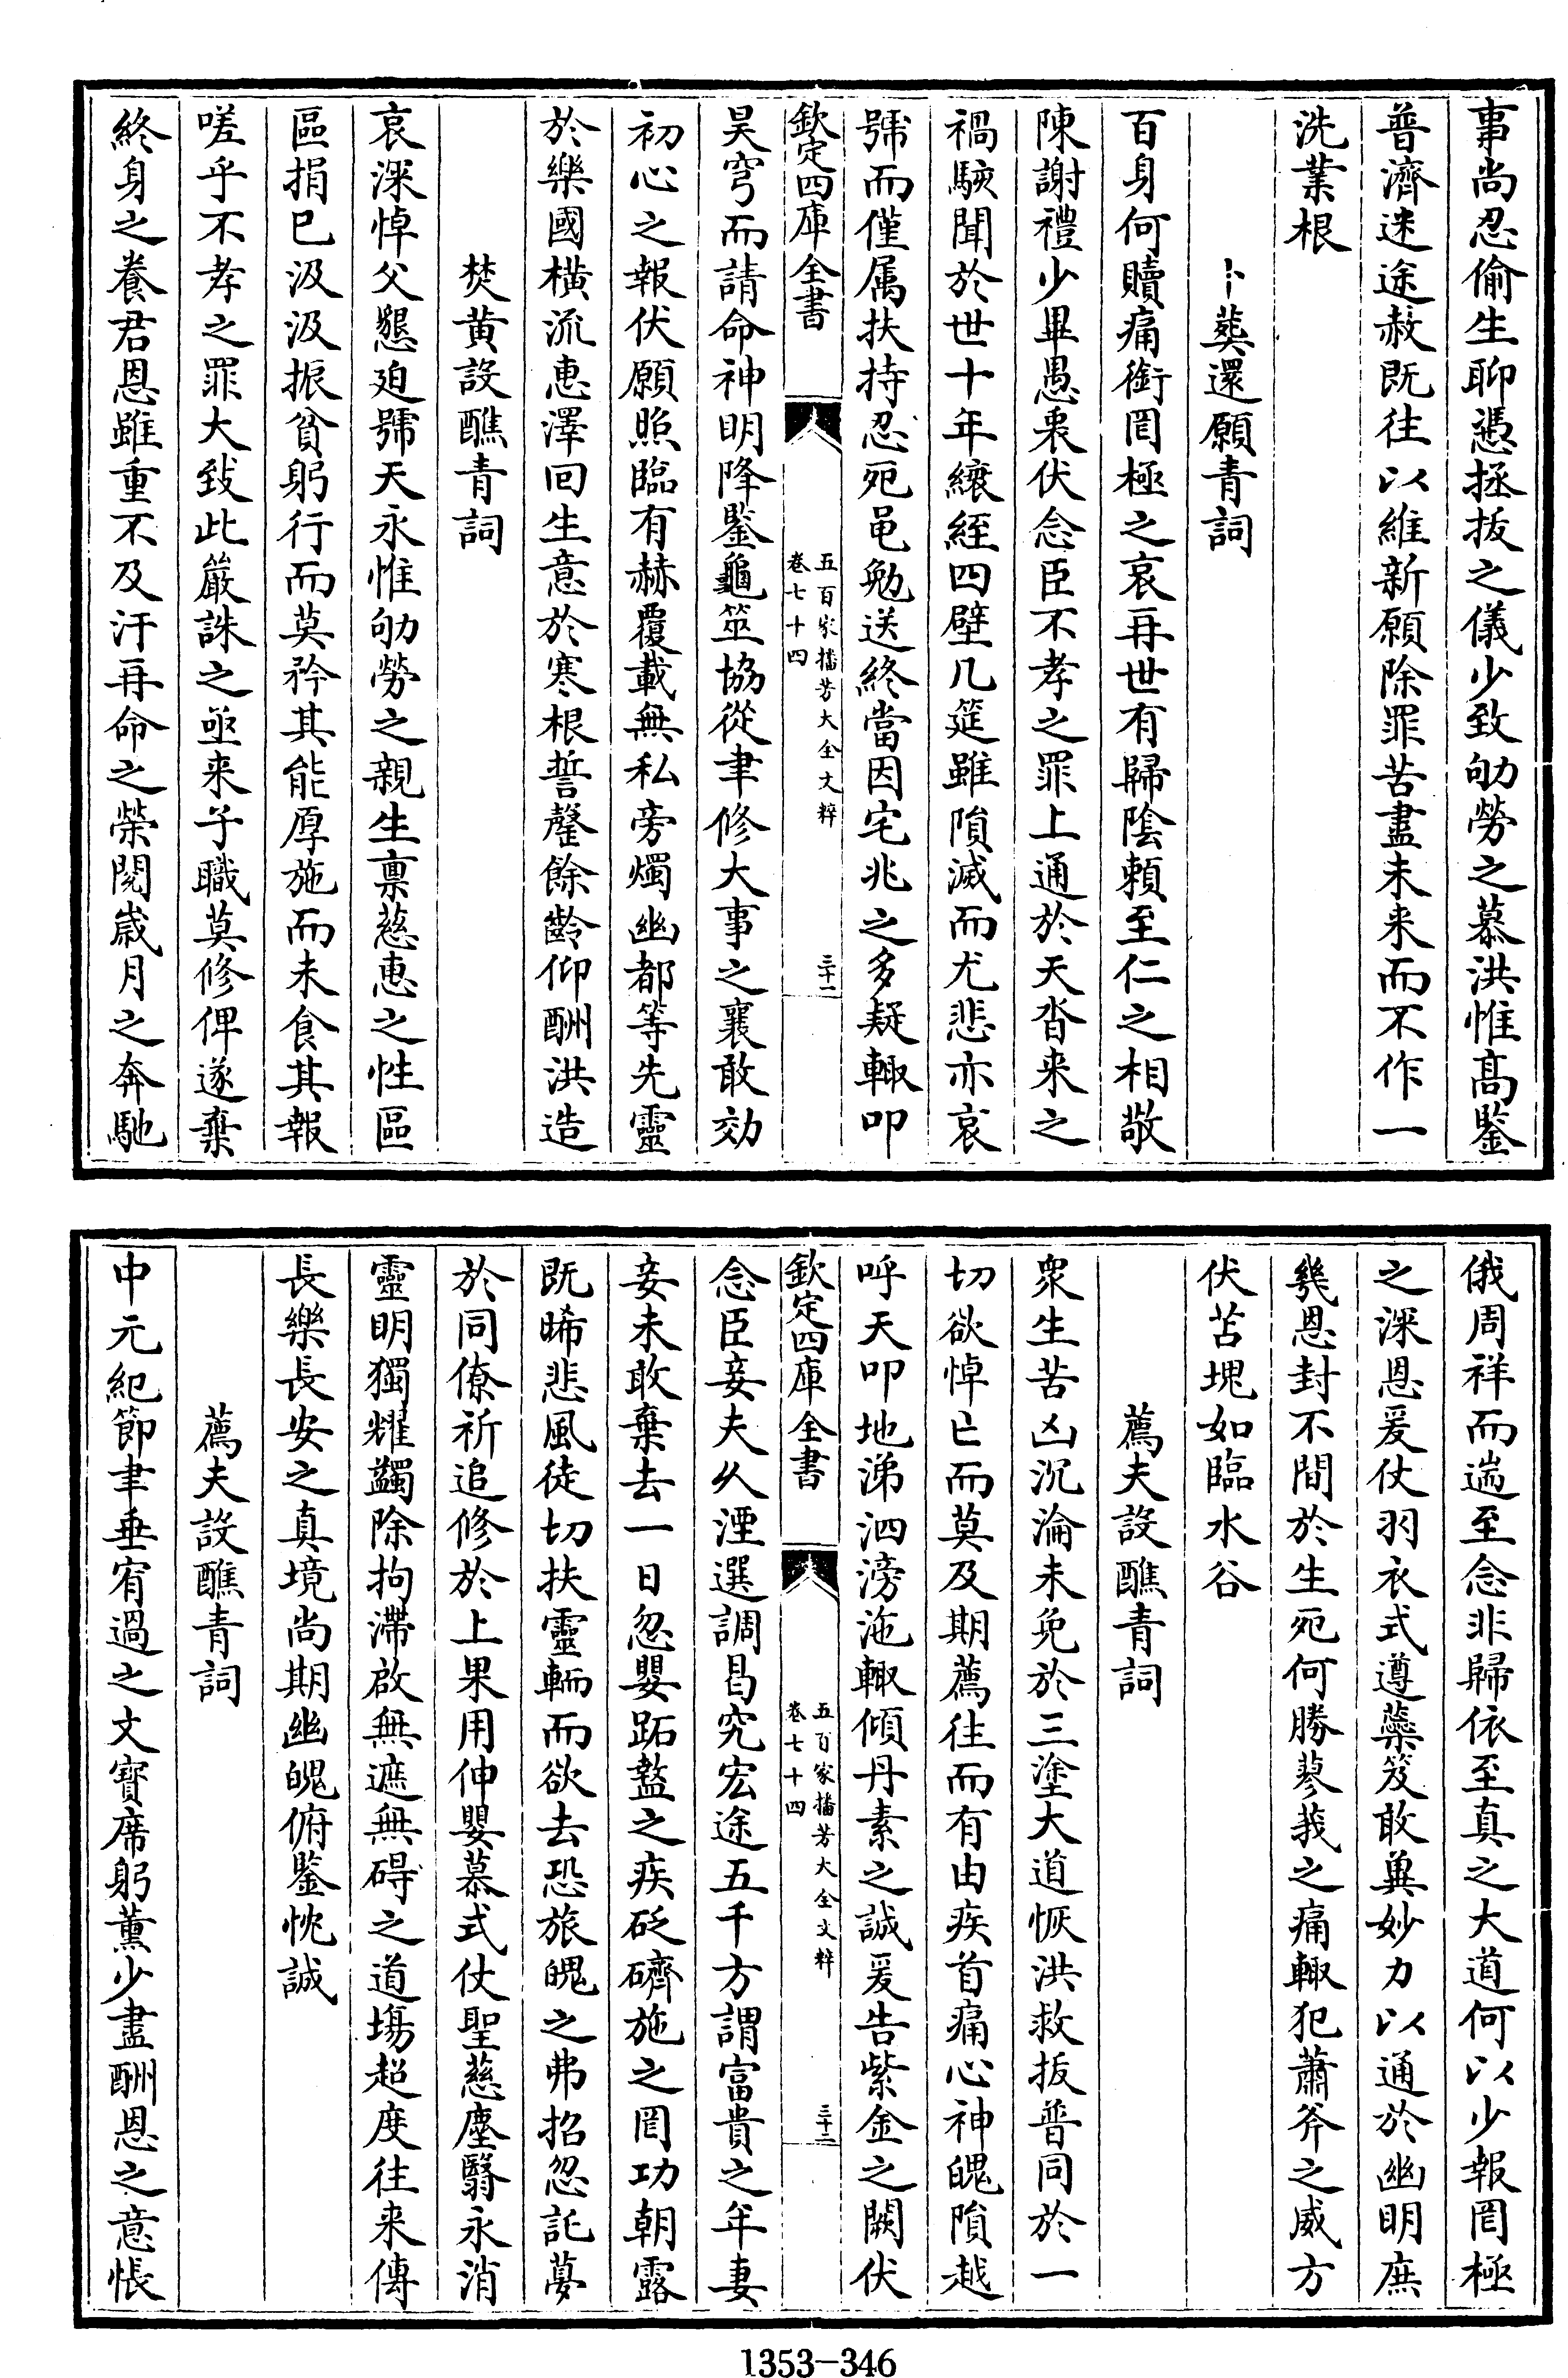 事尚忍偷生聊憑拯拔之儀少致劬勞之慕洪惟髙鑒
普濟迷途赦既往以維新願除罪苦盡未来而不作一
洗業根
卜葬還願青詞
百身何贖痛銜罔極之哀再世有歸陰頼至仁之相敬
陳謝禮少畢愚衷伏念臣不孝之罪上通於天沓来之
禍駭聞於世十年縗絰四壁几筵雖隕滅而尤悲亦哀
號而僅属扶持忍死黽勉送終當因宅兆之多疑輙叩
欽定四庫全書
五百家播芳大全文粹
卷七十四
三十一
昊穹而請命神明降鑒龜筮協從聿修大事之襄敢効
初心之報伏願照臨有赫覆載無私旁燭幽都等先靈
於樂國横流惠澤回生意於寒根誓罄餘齡仰酬洪造
焚黄設醮青詞
哀深悼父懇廹號天永惟劬勞之親生禀慈惠之性區
區捐已汲汲振貧躬行而莫矜其能厚施而未食其報
嗟乎不孝之罪大致此嚴誅之亟来子職莫修俾遂棄
終身之養君恩雖重不及汗再命之榮閲嵗月之奔馳
俄周祥而遄至念非歸依至真之大道何以少報罔極
之深恩爰仗羽衣式遵蘂笈敢兾妙力以通於幽明庶
幾恩封不間於生死何勝蓼莪之痛輙犯蕭斧之威方
伏苫塊如臨水谷
薦夫設醮青詞
衆生苦凶沉淪未免於三塗大道恢洪救拔普同於一
切欲悼亡而莫及期薦往而有由疾首痛心神魄隕越
呼天叩地涕泗滂沲輙傾丹素之誠爰告紫金之闕伏
欽定四庫全書
五百家播芳大全文粹
卷七十四
三十二
念臣妾夫久湮選調曷究宏途五千方謂富貴之年妻
妾未敢棄去一日忽嬰跖盭之疾砭礪施之罔功朝露
既晞悲風徒切扶靈輀而欲去恐旅魄之弗招忽託夢
於同僚祈追修於上果用伸嬰慕式仗聖慈塵翳永消
靈明獨耀蠲除拘滯啟無遮無碍之道塲超度往来傳
長樂長安之真境尚期幽魄俯鑒忱誠
薦夫設醮青詞
中元紀節聿垂宥過之文寳席躬薰少盡酬恩之意悵
1353-346